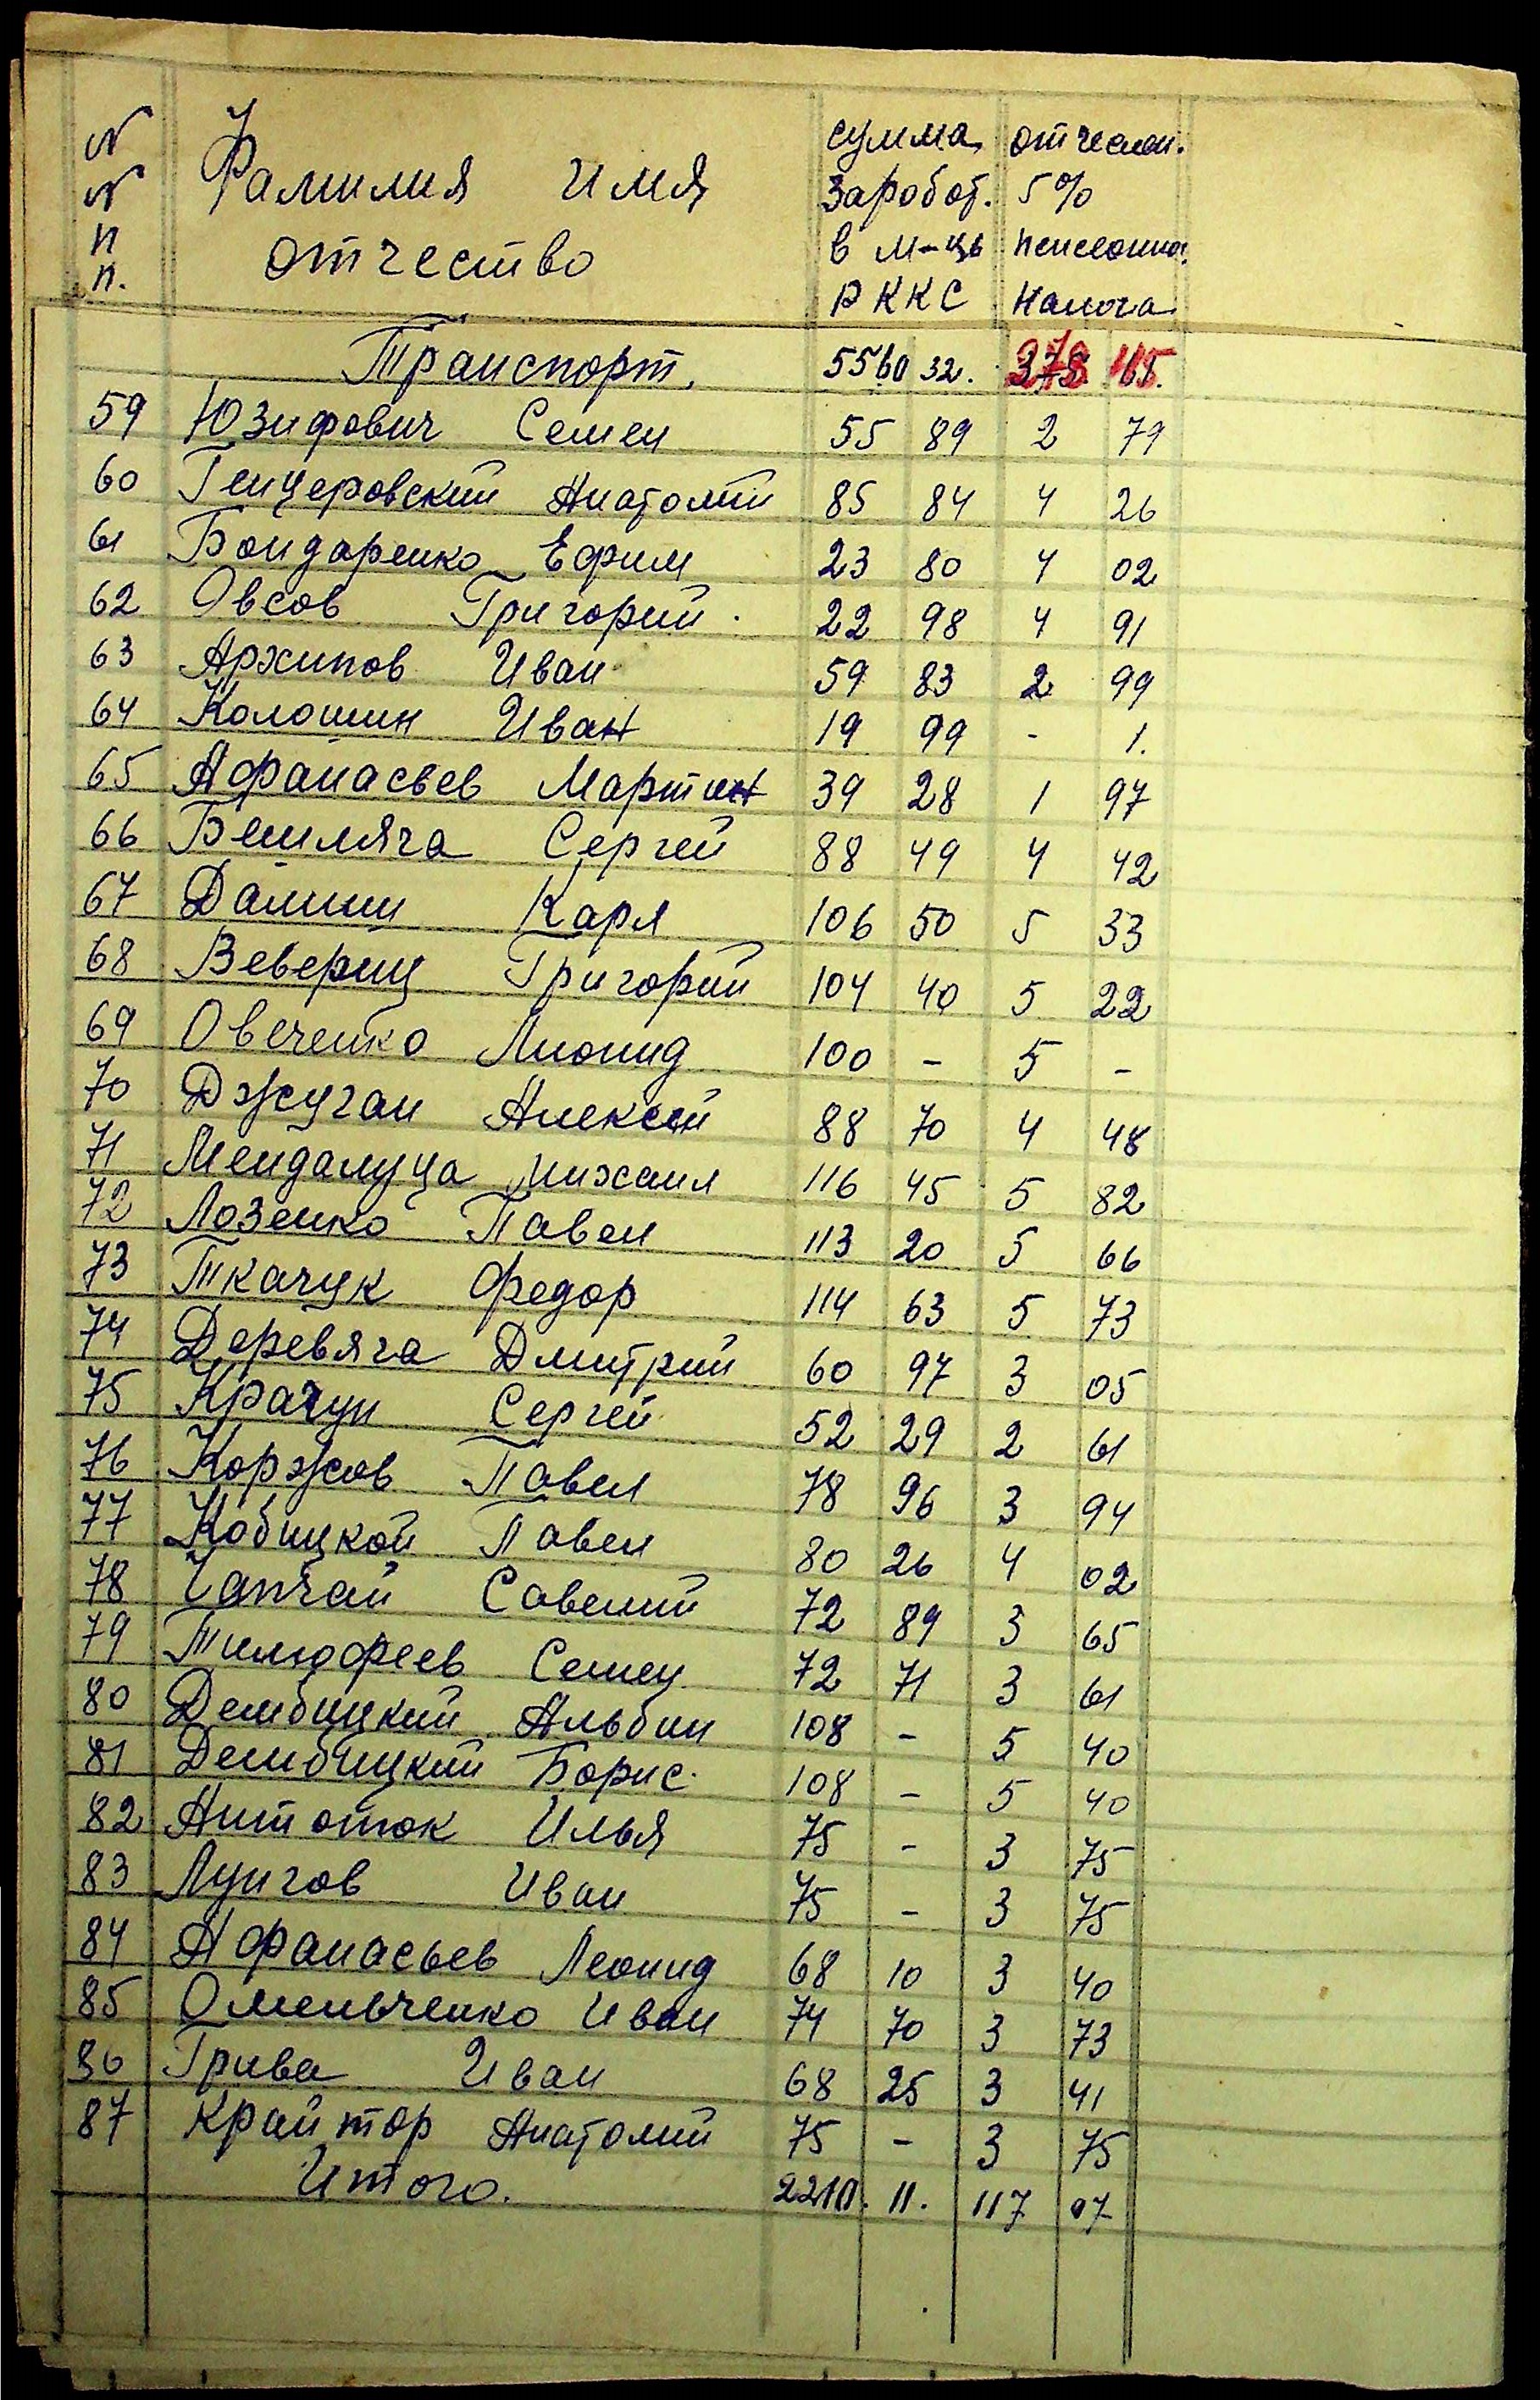 N N п п. Фамилия имя отчество сумма заробот. в м-ць Р ККС отчислен. 5% пенсеонно. налога
Транспорт. 5560 32. 165.
59 Юзифович Семен 55 89 2 79
60 Генцеровский Анатолий 85 84 4 26
61 Бондаренко Ефим 23 80 4 02
62 Овсов Григорий. 22 98 4 91
63 Архипов Иван 59 83 2 99
64 Колошин Иван 19 99 - 1.
65 Афанасьев Мартин 39 28 1 97
66 Бешляга Сергей 88 49 4 42
67 Карл 106 50 5 33
68 Вевериц Григорий 104 40 5 22
69 Овеченко Лионид 100 - 5 -
70 Джуган Алексей 88 70 4 48
71 Мендалуца Михаил 116 45 5 82
72 Лозенко Павел 113 20 5 66
73 Ткачук Федор 114 63 5 73
74 Деревяга Дмитрий 60 97 3 05
75 Крачун Сергей 52 29 2 61
76 Коржов Павел 78 96 3 94
77 Кобицкой Павел 80 26 4 02
78 Чапчай Савелий 72 89 3 65
79 Тимофеев Семен 72 71 3 61
80 Дембицкий Альбин 108 - 5 40
81 Дембицкий Борис. 108 - 5 40
82 Антоток Илья 75 - 3 75
83 Лунгов Иван 75 - 3 75
84 Афанасьев Леонид 68 10 3 40
85 Омельченко Иван 74 70 3 73
86 Грива Иван 68 25 3 41
87 Крайтор Анатолий 75 - 3 75
Итого. 2210. 11. 117 07